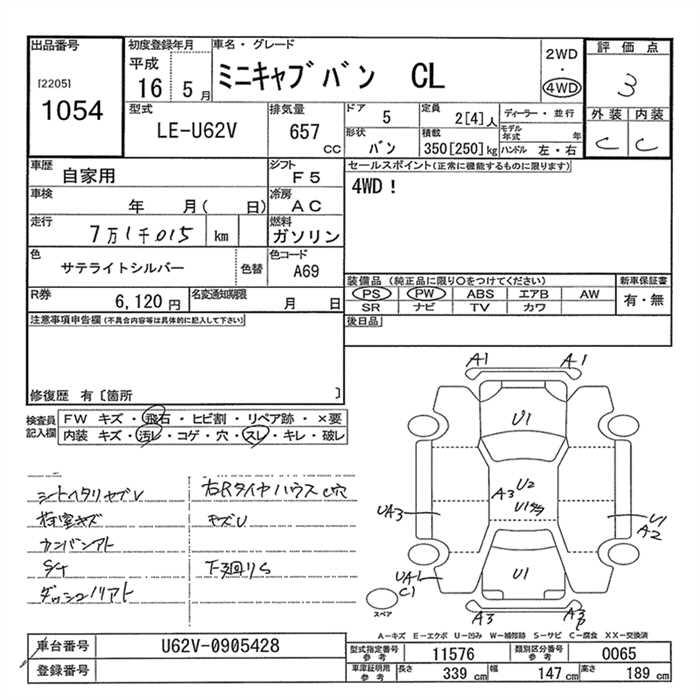 出品番号 初度登録年月 車名・グレード 2WD 評価点
[2205] 平成 ミニキャブバン CL ・ 3
1054 16 5月 4WD
型式 排気量 ドア 5 定員 2[4]人 ディーラー・並行 外装 内装
LE-U62V 657 cc 形状 バン 積載 350[250]kg モデル年式 年 C C
ハンドル 左・右
車歴 自家用 シフト F5 セールスポイント(正常に機能するものに限ります)
車検 年 月( 日) 冷房 AC 4WD!
走行 7万1千015 km 燃料 ガソリン
色 サテライトシルバー 色替 色コード A69
装備品 (純正品に限り○をつけてください) 新車保証書
R券 6,120円 名変通知期限 月 日 PS PW ABS エアB AW 有・無
SR ナビ TV カワ
注意事項申告欄(不具合内容等は具体的に記入して下さい) 後日品
修復歴 有〔箇所 〕
検査員記入欄 FW キズ・飛石・ヒビ割・リペア跡・×要
内装 キズ・汚レ・コゲ・穴・スレ・キレ・破レ
A1 A1
U1
A3 U2
UA3 U1
A2
UA1
C1 U1
スペア A3 A3
シートヘタリヤブレ 右Rタイヤハウス C穴
荷室キズ キズU
カンバンアト
S4 下廻りS
ダッシュノリアト
A-キズ E-エクボ U-凹み W-補修跡 S-サビ C-腐食 XX-交換済
車台番号 U62V-0905428 型式指定番号参考 11576 類別区分番号参考 0065
登録番号 車庫証明用参考 長さ 339 cm 幅 147 cm 高さ 189 cm